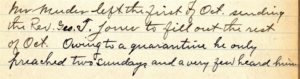 Mr Muder left the first of Oct. sending
the Rev. Geo. T. Jones to fill out the rest
of Oct. Owing to a quarantine he only
preached two sundays and a very few heard him